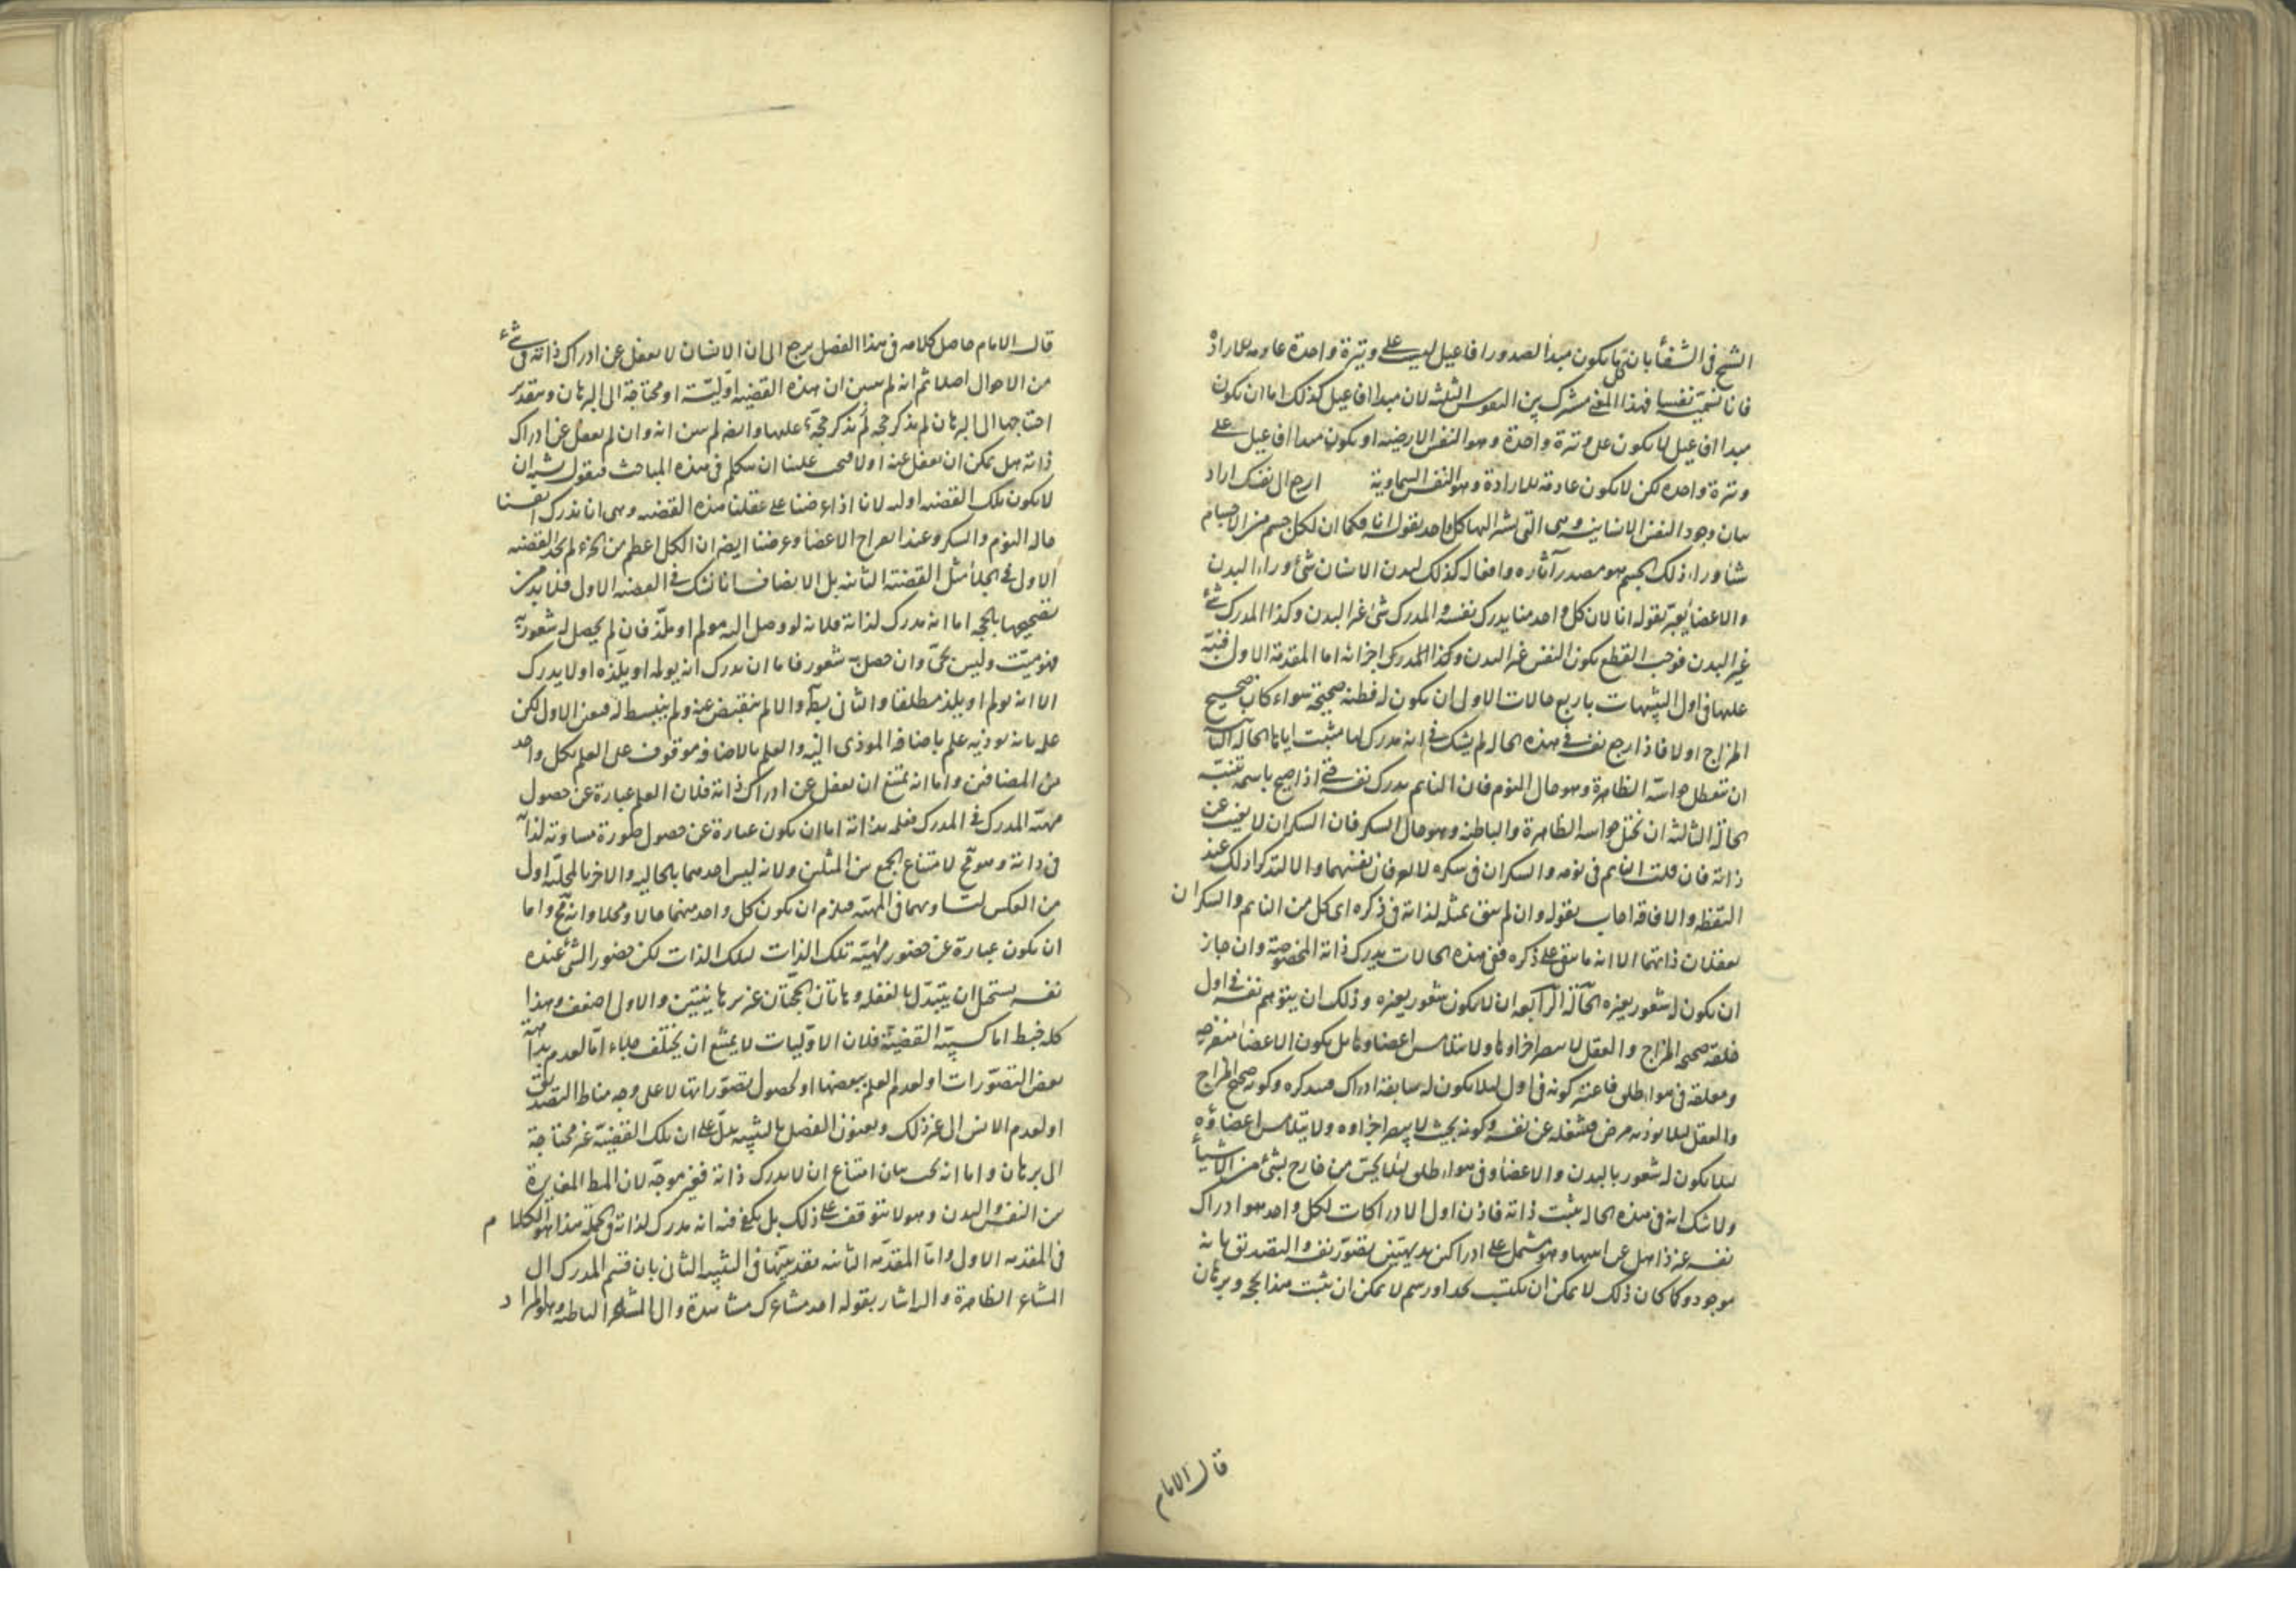 الشيخ في الشفأ بان كل ما يكون مبدأ لصدور افاعيل ليست على وتيرة واحدة عادمه للارادة
فانا نسميه نفسا فهذا المعنى مشترك بين النفوس الثلثه لان مبدا افاعيل كذلك اما ان يكون
مبدا افاعيل لا يكون على وتيرة واحدة وهو النفس الارضيه او يكون مبدا افاعيل على
وتيرة واحده لكن لا يكون عادمة للارادة وهو النفس السماوية ارجع الى نفسك اراد
بيان وجود النفس الانسانية وهى التى يشير اليها كل واحد بقوله انا فكما ان لكل جسم من الاجسام
شئا وراء ذلك الجسم هو مصدر آثاره وافعاله كذلك لبدن الانسان شئ وراء البدن
والاعضأ يعبر بقوله انا لان كل واحد منا يدرك نفسه والمدرك شئ غير البدن وكذا المدرك شئ
غير البدن فوجب القطع بكون النفس غير البدن وكذا المدرك اجزائه اما المقدمة الاولى فنبه
عليها فى اول التنبيهات باربع حالات الاولى ان يكون له فطنه صحيحة سواء كان صحيح
المزاج اولا فاذا رجع نفسه فى هذه الحاله لم يشك فى انه مدرك لها مثبت اياها الحاله الثانية
ان تتعطل حواسه الظاهرة وهو حال النوم فان النايم يدرك نفسه حتى اذا صيح باسمه تنبه
الحالة الثالثه ان تختل حواسه الظاهرة والباطنه وهو حال السكر فان السكران لا يغيب عن
ذاته فان قلت النايم فى نومه والسكران فى سكره لا يعرفان نفسهما والا لتذكرا ذلك عند
اليقظه والافاقه اجاب بقوله وان لم يبق تمثله لذاته فى ذكره اى كل من النايم والسكران
يعقلان ذاتهما الا انه ما بقى على ذكره ففى هذه الحالات يدرك ذاته المخصوصة وان جاز
ان يكون له شعور بغيره الحالة الرابعه ان لا يكون شعور بغيره وذلك ان يتوهم نفسه فى اول
خلقه صحيح المزاج والعقل لا يبصر اجزاؤها ولا يتلامس اعضاؤها بل يكون الاعضأ منفرجه
ومعلقة فى هواء طلق فاعتبر كونه فى اول لئلا يكون له سابقة ادراك فيتذكره وكونه صحيح المزاج
والعقل لئلا يوذيه مرض فيشغله عن نفسه وكونه بحيث لا يبصر اجزاوه ولا يتلامس اعضاؤه
لئلا يكون له شعور بالبدن والاعضاء وفى هواء طلق لئلا يحس من خارج بشئ من الاشيأ
ولا شك انه فى هذه الحاله مثبت ذاته فاذن اول الادراكات لكل واحد هو ادراك
نفسه وهو مشتمل على ادراكين بديهيين تصور نفسه والتصديق بانه
موجود وكما كان ذلك لا يمكن ان يكتسب بحد او رسم لا يمكن ان يثبت هذا بحجه وبرهان
قال الامام
قال الامام حاصل كلامه فى هذا الفصل يرجع الى ان الانسان لا يغفل عن ادراك ذاته فى شئ
من الاحوال اصلا ثم انه لم يبين ان هذه القضيه اوليّة او محتاجة الى البرهان وبتقدير
احتياجها الى البرهان لم يذكر حجة عليها وايضه لم يبين انه وان لم يغفل عن ادراك
ذاته هل يمكن ان يغفل عنه اولا فيجب علينا ان نتكلم فى هذه المباحث فنقول يشبه ان
لا يكون تلك القضيه اوليه لانا اذا عرضنا على عقلنا هذه القضيه وهى انا ندرك انفسنا
حاله النوم والسكر وعند انفراج الاعضأ وعرضنا ايضه ان الكل اعظم من الجزء لم نجد القضيه
الاولى فى الجلأ مثل القضية الثانيه بل الانصاف انا نشك فى القضيه الاولى فلا بد من
تصحيحها بالحجه اما انه مدرك لذاته فلانه لو وصل اليه مولم او ملذ فان لم يحصل له شعور به
فهو ميّت وليس بحىّ وان حصل له شعور فاما ان يدرك انه يولمه او يلذه اولا يدرك
الا انه يولم او يلذ مطلقا والثانى بط والا لم ينقبض عنه ولم ينبسط له فتعين الاول لكن
علمه بانه يوذيه علم باضافة الموذى اليه والعلم بالاضافه موقوف على العلم بكل واحد
من المضافين واما انه يمتنع ان يغفل عن ادراك ذاته فلان العلم عبارة عن حصول
مهيّة المدرك فى المدرك فعلمه بذاته اما ان يكون عبارة عن حصول صورة مساوية لذاته
فى ذاته وهو مح لامتناع الجمع بين المثلين ولانه ليس احدهما بالحاليه والاخر بالمحليّه اولى
من العكس لتساويهما فى المهيّه فيلزم ان يكون كل واحد منهما حالا ومحلا وانه مح واما
ان يكون عبارة عن حضور مهيّة تلك الذات لتلك الذات لكن حضور الشئ عنده
نفسه يستحيل ان يتبدل بالغفله وهاتان الحجتان غير برهانيتين والاولى اضعف وهذا
كله خبط اما كسبيّة القضيّة فلان الاوّليات لا يمتنع ان يختلف جلاء امّا لعدم بداهة
بعض التصوّرات او لعدم العلم ببعضها او لحصول تصوّراتها لا على وجه مناط التصديق
او لعدم الانس الى غير ذلك وعنون الفصل بالتنبيه يدلّ على ان تلك القضيّة غير محتاجة
الى برهان واما انه يجب بيان امتناع ان لا يدرك ذاته فغير موجّه لان المط المغايرة
بين النفس والبدن وهو لا يتوقف على ذلك بل يكفى فيه انه مدرك لذاته فى الجمله هذا هو الكلام
فى المقدمه الاولى وامّا المقدّمه الثانيه فقد بيّنها فى التنبيه الثانى بان قسم المدرك الى
المشاعر الظاهرة واليه اشار بقوله احد مشاعرك مشاهدة والى المشاعر الباطنه وهو المراد